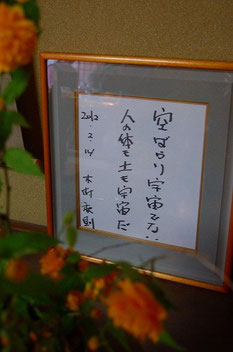 空ばかり宇宙でない
人の体も土も宇宙だ
2012.2.14 木村秋則